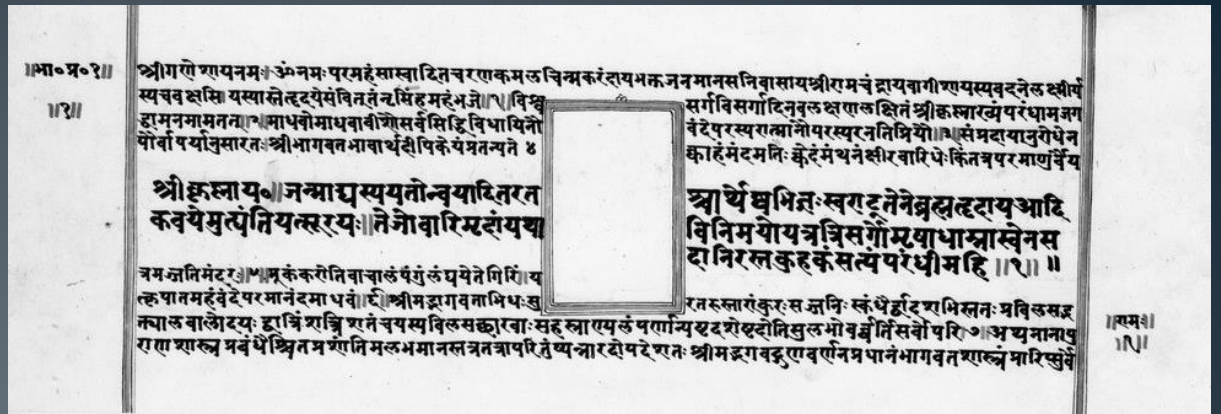 ॥भा०प्र०१॥
॥१॥
श्रीगणेशायनमः॥ॐनमःपरमहंसास्वादितचरणकमलचिन्मकरंदायभक्तजनमानसनिवासायश्रीरामचंद्रायवागीशायस्यवदनेलक्ष्मीर्य
स्यचवक्षसि यस्यास्तेहृदयेसंवित्तंनृसिंहमहंभजे॥१॥विश्व सर्गविसर्गादिनवलक्षणलक्षितं श्रीकृष्णाख्यंपरंधामजग
द्धामनमामतत्॥२॥माधवोमाधवावीशौसर्वसिद्धिविधायिनौ वंदेपरस्परात्मानौपरस्परनतिप्रियौ॥३॥संप्रदायानुरोधेन
पौर्वापर्यानुसारतः॥श्रीभागवतभावार्थदीपिकेयंप्रतन्यते ४ क्वाहंमंदमतिःक्वेदंमंथनंक्षीरवारिधेःकिंतत्रपरमाणुर्वैय
श्रीकृष्णाय०॥जन्माद्यस्ययतोन्वयादितरत श्चार्थेष्वभिज्ञःस्वराट्तेनेब्रह्महृदायआदि
कवयेमुह्यंतियत्सूरयः॥तेजोवारिमृदांयथा विनिमयोयत्रत्रिसर्गोमृषाधाम्नास्वेनस
दानिरस्तकुहकंसत्यंपरंधीमहि॥१॥॥
त्रमज्जतिमंदरः॥५॥मूकंकरोतिवाचालंपंगुंलंघयतेगिरिं॥य
त्कृपातमहंवंदेपरमानंदमाधवं॥६॥श्रीमद्भागवताभिधःसु रतरुस्तारांकुरःसज्जनिःस्कंधैर्द्वादशभिस्ततःप्रविलसद्भ
क्त्यालवालोदयः द्वात्रिंशत्त्रिशतंचयस्यविलसच्छाखाःसहस्राण्यलंपर्णान्यष्टदशेष्टदोतिसुलभोवर्वर्तिसर्वोपरि७॥अथनानापु
राणशास्त्रप्रबंधैश्चित्तप्रशांतिमलभमानस्तत्रतत्रापरितुष्यन्नारदोपदेशतः श्रीमद्भगवद्गुणवर्णनप्रधानंभागवतशास्त्रंप्रारिप्सुर्वे
॥रामः॥
॥१॥